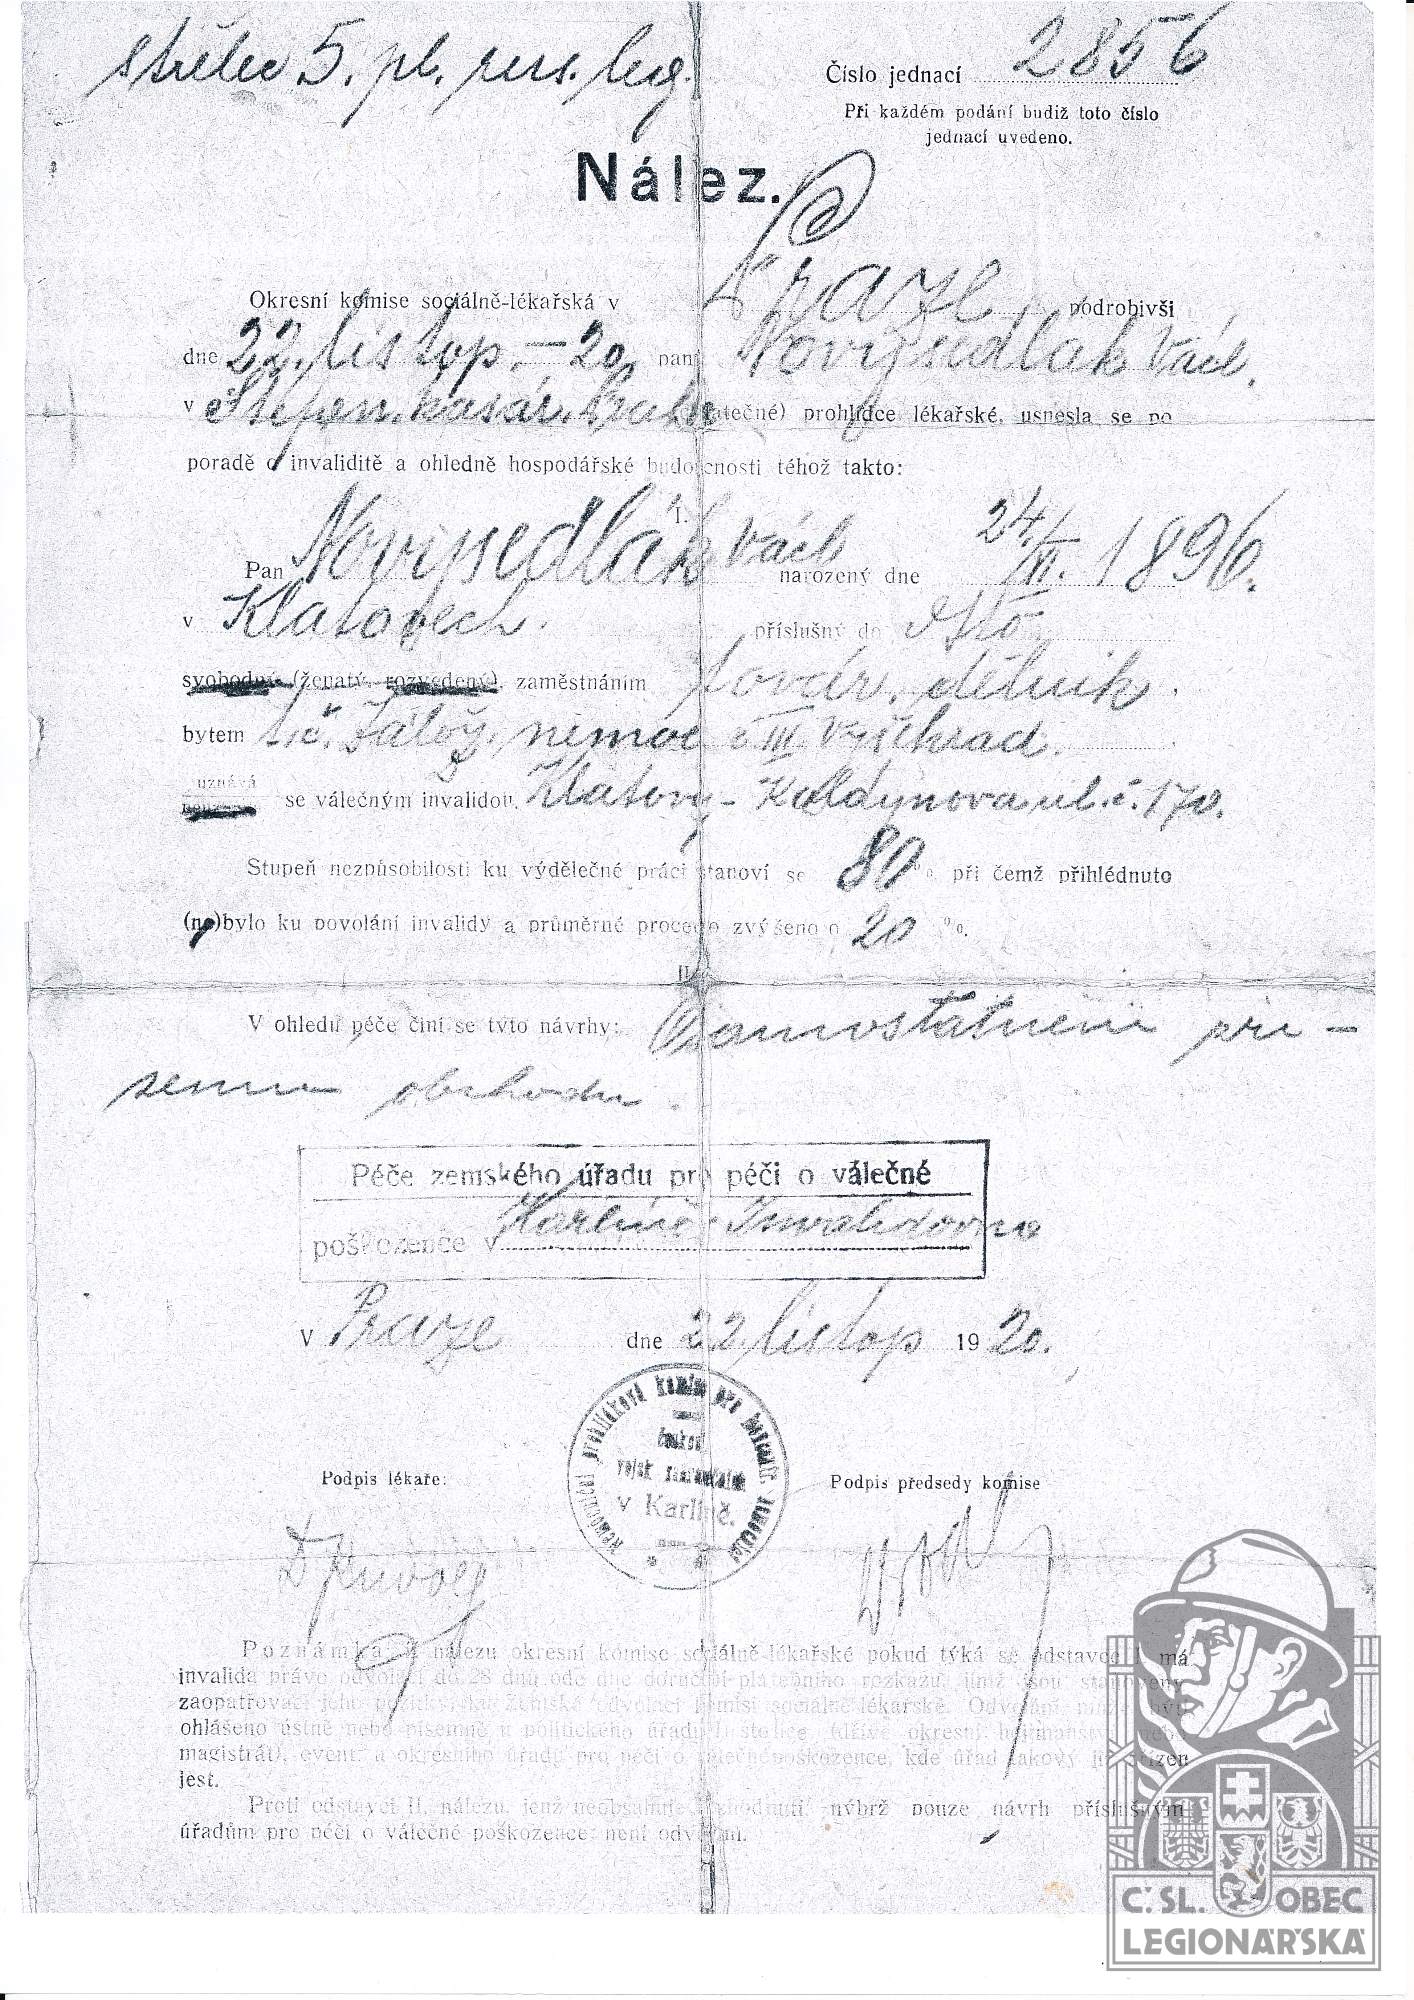 střelec 5. pl. rus. leg.
Číslo jednací 2856
Při každém podání budiž toto číslo
jednací uvedeno.
Nález.
Okresní komise sociálně-lékařská v Praze podrobivši
dne 22. listop. - 20. pan Novýsedlák Václ.
v Štefan. kasár. prohlídce lékařské, usnesla se po
poradě o invaliditě a ohledně hospodářské budoucnosti téhož takto:
I.
Pan Novýsedlák Václ. narozený dne 24./VI. 1896.
v Klatovech. příslušný do
svobodný (ženatý, rozvedený), zaměstnáním továr. dělník.
bytem nemoc. č III Vyšehrad.
uznává
se válečným invalidou. Klatovy - Koldynova ul. č. 170.
Stupeň nezpůsobilosti ku výdělečné práci stanoví se 80 %, při čemž přihlédnuto
(ne)bylo ku povolání invalidy a průměrné procento zvýšeno o 20 %.
II.
V ohledu péče činí se tyto návrhy: Osamostatnění při-
obchodu.
Péče zemského úřadu pro péči o válečné
poškozence v Karlíně Invalidovna
V Praze dne 22. listop 1920.
prohlídková komise pro
v Karlíně.
Podpis lékaře:
Podpis předsedy komise
Poznámka. Z nálezu okresní komise sociálně-lékařské pokud týká se odstavce I. má
invalida právo odvolati do 28 dnů ode dne doručení platebního rozkazu, jímž jsou stanoveny
zaopatřovací jeho požitky, ku zemské odvolací komisi sociálně-lékařské. Odvolání může býti
ohlášeno ústně nebo písemně u politického úřadu I. stolice (dříve okresní hejtmanství nebo
magistrát), event. u okresního úřadu pro péči o válečné poškozence, kde úřad takový již zřízen
jest.
Proti odstavci II. nálezu, jenž neobsahuje rozhodnutí, nýbrž pouze návrh příslušným
úřadům pro péči o válečné poškozence, není odvolání.
Č.SL. OBEC
LEGIONÁŘSKÁ